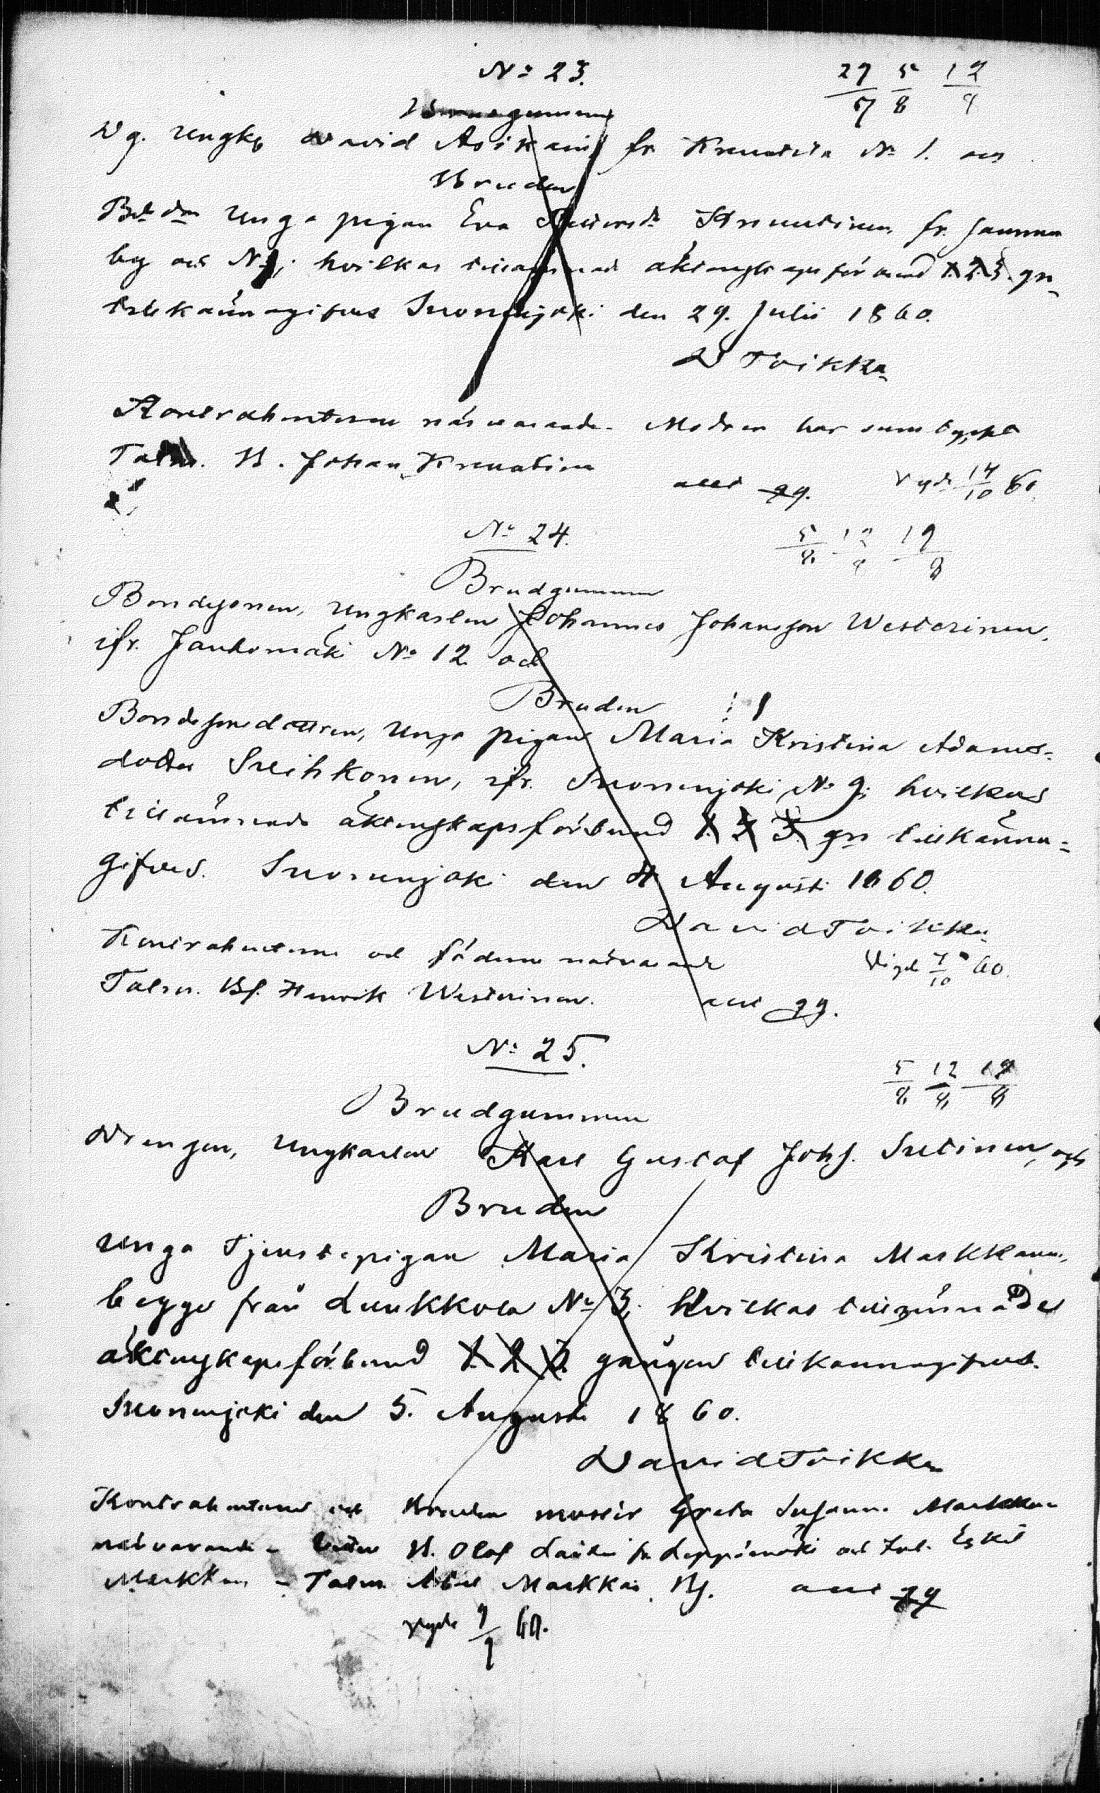 No 23. 29/7 5/8 12/8
Brudgummen
Dg. Ungk. David Asikain fr. No 1. och
Bruden
Unga pigan Eva fr. Jaunna
by och No hvilkas äktenskapsförbund 1. 2. 3. gn
tillkännagifves Suonenjoki den 29. Julii 1860.
D Toikka
Kontrahenterna närvarande. Modren har samtyckt
Talm. B. Johan
Vigde 14/10 60.
No 24. 5/8 12/8 19/8
Brudgummen
Bondesonen, Ungkarlen Johannes Johansson Westerinen,
ifr. Jauhomäki No 12 och
Bruden
Bondesonedottren, Unga pigan Maria Kristina Adams-
dotter Sutihkonen, ifr. Suonenjoki No 9; hvilkas
tillämnade äktenskapsförbund 1. 2. 3. gn tillkänna-
gifves. Suonenjoki den 4 Augusti 1860.
David Toikka
Kontrahenterna och fädren närvarande Vigd 7/10 60.
Talm. Bf. Henrik Westerinen.
No 25. 5/8 12/8 19/8
Brudgummen
Drengen, Ungkarlen Karl Gustaf Johs. Sutinen, och
Bruden
Unga Tjenstepigan Maria Kristina Markkanen,
begge från Luukkola No 3; hvilkas tillämnade
äktenskapsförbund 1. 2. 3. gången tillkännagifves.
Suonenjoki den 5. Augusti 1860.
David Toikka
Kontrahenterna och Brudens Greta Susanna Markkanen
närvarande - B. Olof fr. Leppämäki och Eskil
Markkan - Talm. Abel Markkan Bf.
Vigde 9/9 60.